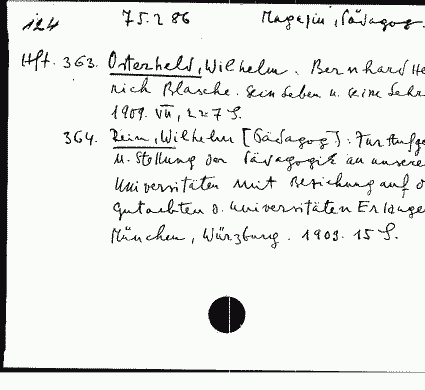 i24 75.2 86 Magazin, Pädagog.
Hft. 363. Osterheld, Wilhelm. Bernhard He
rich Blasche. Sein Leben u. seine Lehr
1909. VII, 227 S.
364. Rein, Wilhelm [Pädagog]: Zur Aufga
u. Stellung der Pädagogik an unsere
Universitäten mit Beziehung auf d
Gutachten d. Universitäten Erlange
München, Würzburg. 1909. 15 S.